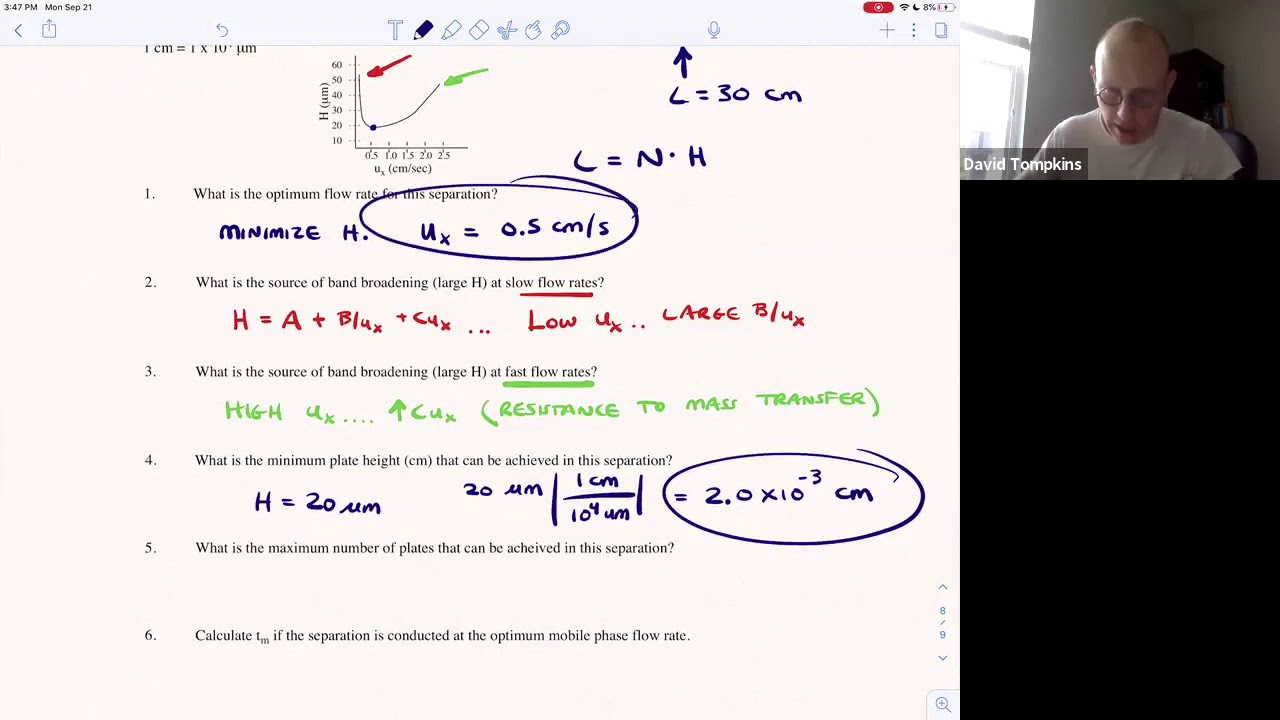 3:47 PM Mon Sep 21
8%
1 cm = 1 x 10⁴ µm
60
50
40
30
20
10
H (µm)
0.5 1.0 1.5 2.0 2.5
uₓ (cm/sec)
L = 30 cm
L = N · H
David Tompkins
1. What is the optimum flow rate for this separation?
MINIMIZE H. uₓ = 0.5 cm/s
2. What is the source of band broadening (large H) at slow flow rates?
H = A + B/uₓ + Cuₓ ... LOW uₓ .. LARGE B/uₓ
3. What is the source of band broadening (large H) at fast flow rates?
HIGH uₓ .... ↑ Cuₓ (RESISTANCE TO MASS TRANSFER)
4. What is the minimum plate height (cm) that can be achieved in this separation?
H = 20 µm 20 µm | 1 cm / 10⁴ µm | = 2.0 × 10⁻³ cm
5. What is the maximum number of plates that can be acheived in this separation?
6. Calculate tₘ if the separation is conducted at the optimum mobile phase flow rate.
8
/
9